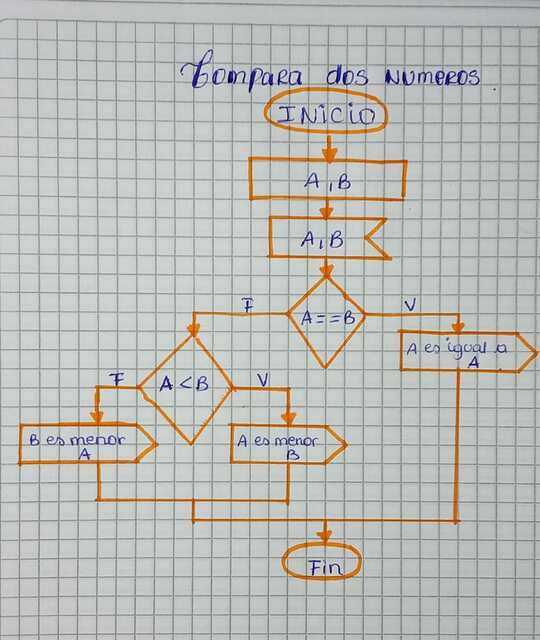 Compara dos numeros
INICIO
A, B
A, B
A==B
F
V
A es igual a
A
A<B
F
V
B es menor
A
A es menor
B
Fin